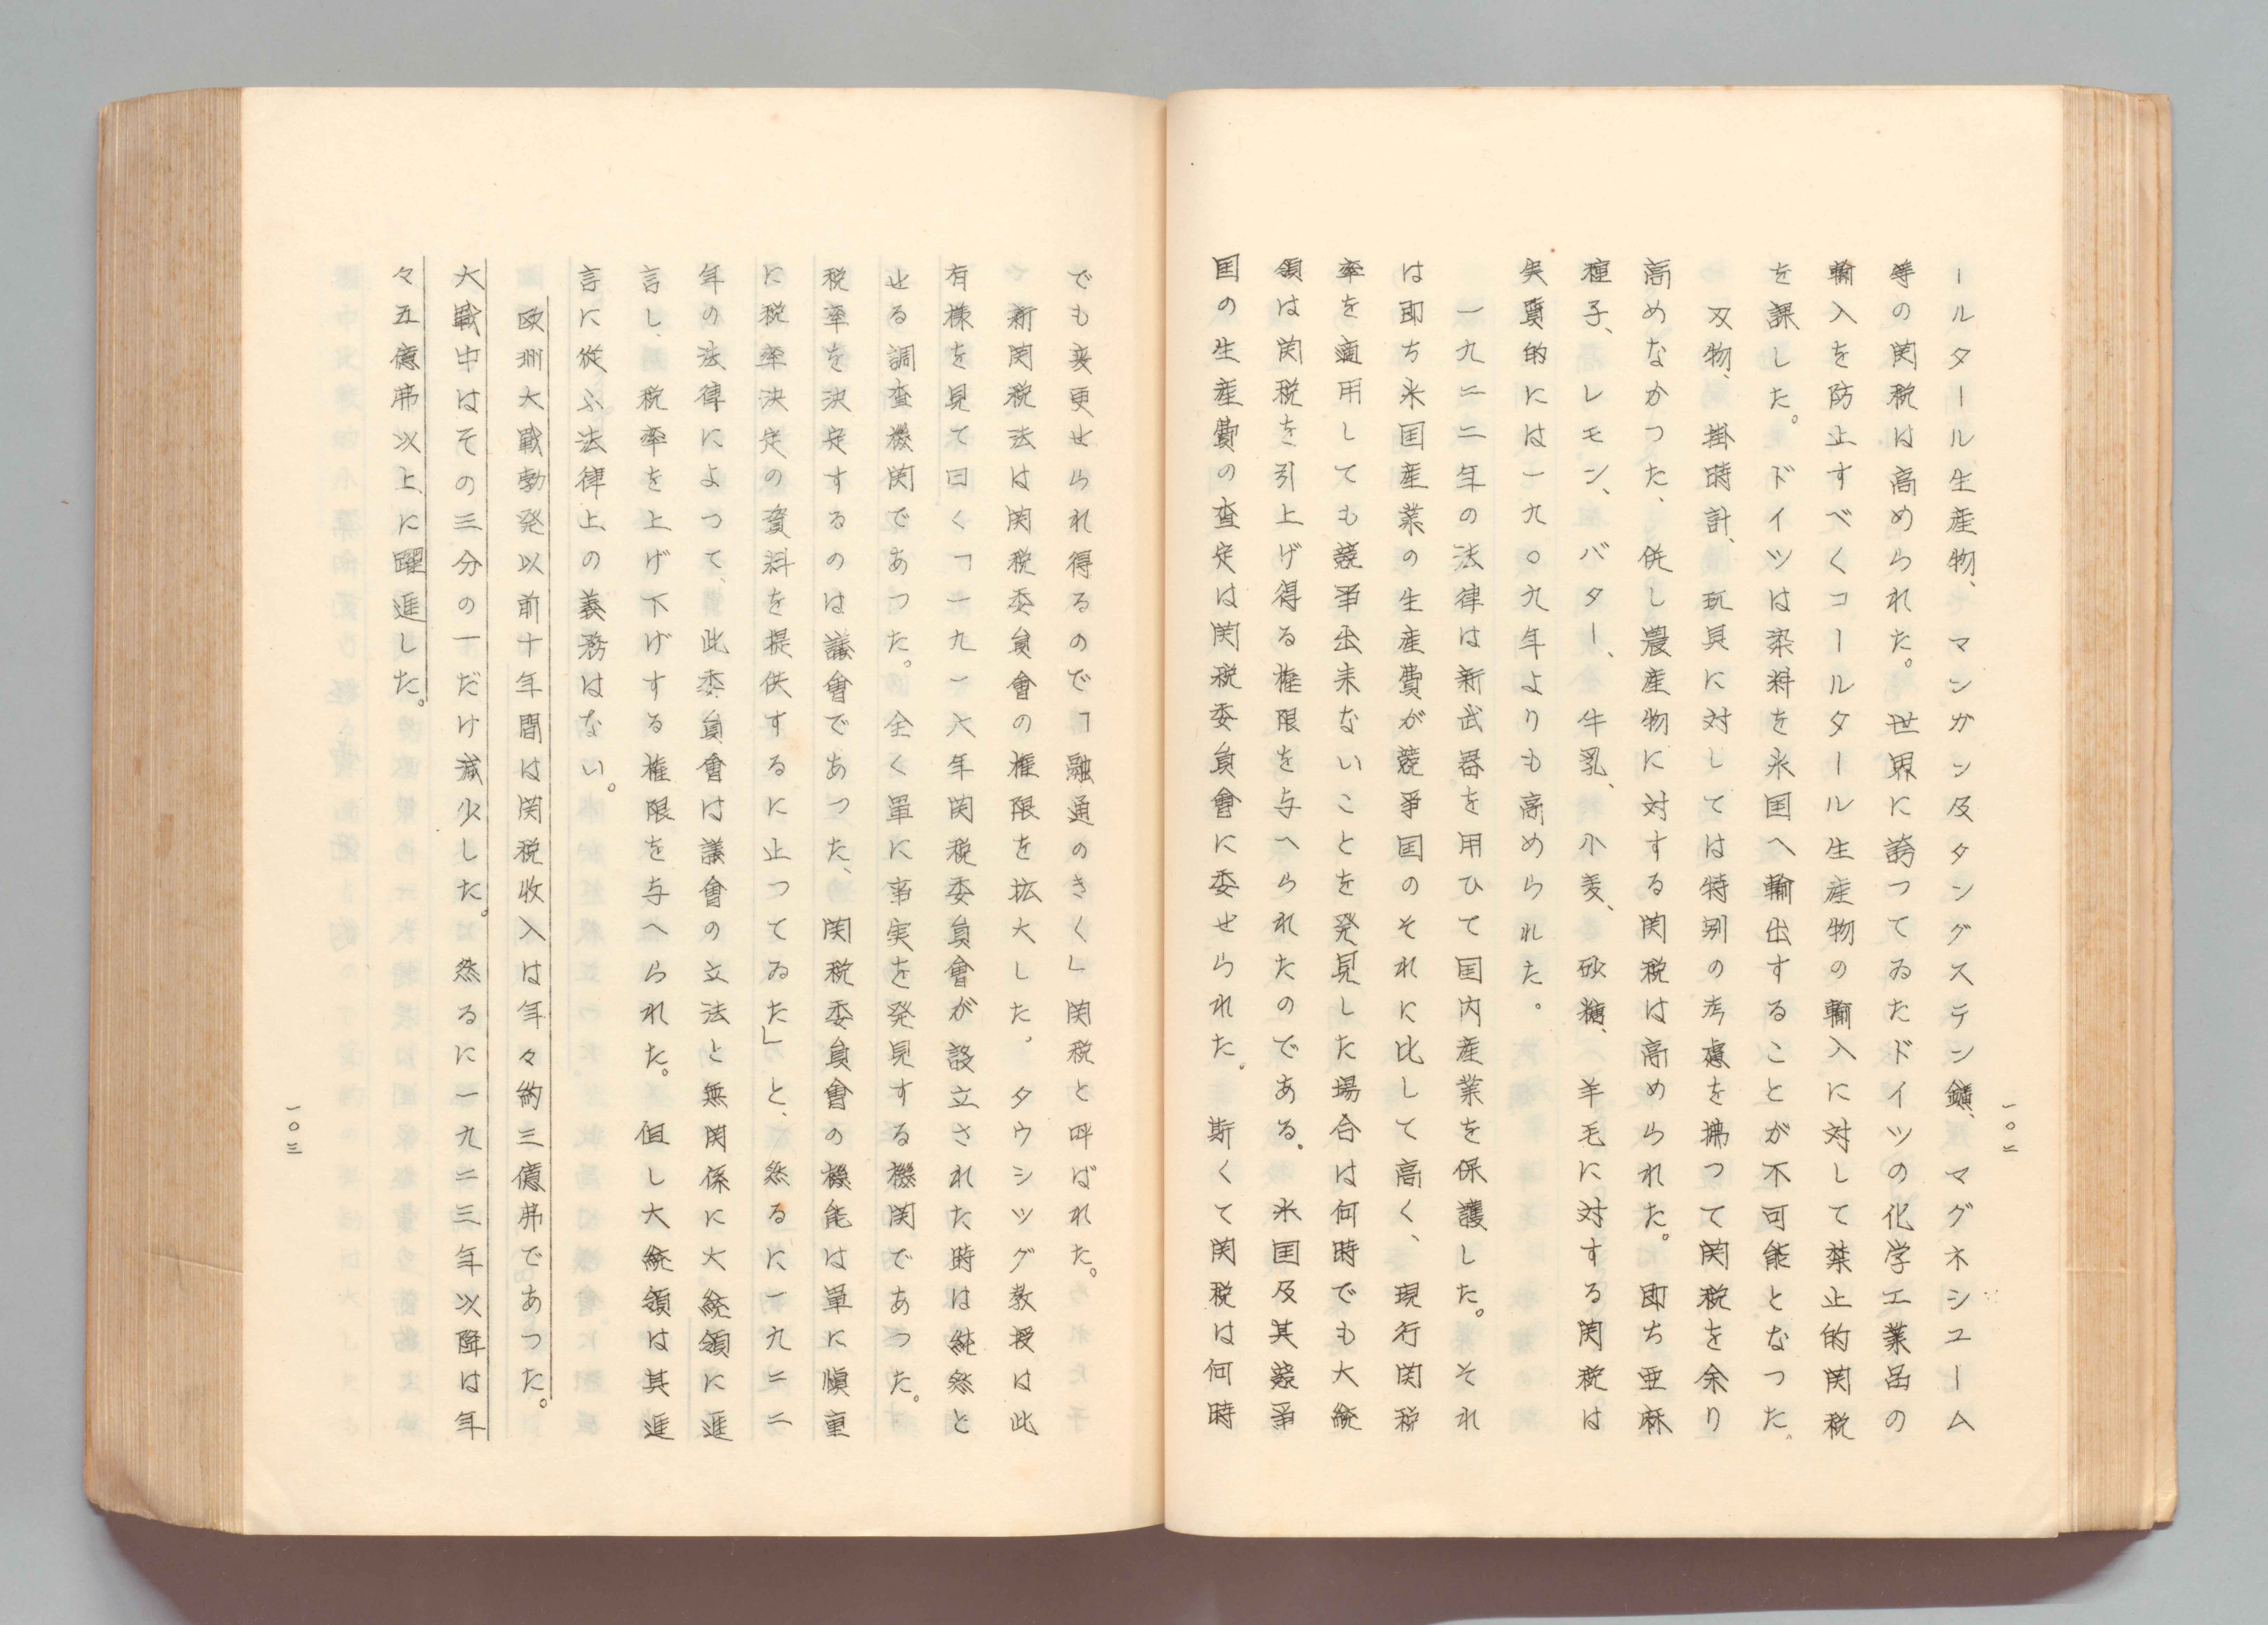 一〇二
ールタール生産物、マンガン及タングステン鑛、マグネシユーム
等の関税は高められた。世界に誇つてゐたドイツの化学工業品の
輸入を防止すべくコールタール生産物の輸入に対して禁止的関税
を課した。ドイツは染料を米国へ輸出することが不可能となつた。
刄物、掛時計、玩具に対しては特別の考慮を拂つて関税を余り
高めなかつた、併し農産物に対する関税は高められた。即ち亜麻
種子、レモン、バター、牛乳、小麦、砂糖、羊毛に対する関税は
実質的には一九〇九年よりも高められた。
一九二二年の法律は新武器を用ひて国内産業を保護した。それ
は即ち米国産業の生産費が競爭国のそれに比して高く、現行関税
率を適用しても競爭出来ないことを発見した場合は何時でも大統
領は関税を引上げ得る権限を与へられたのである。米国及其競爭
国の生産費の査定は関税委員會に委せられた。斯くて関税は何時
でも変更せられ得るので「融通のきく」関税と呼ばれた。
新関税法は関税委員會の権限を拡大した。タウシツグ教授は此
有様を見て曰く「一九一六年関税委員會が設立された時は純然と
せる調査機関であつた。全く單に事実を発見する機関であつた。
税率を決定するのは議會であつた、関税委員會の機能は單に愼重
に税率決定の資料を提供するに止つてゐた」と、然るに一九二二
年の法律によつて、此委員會は議會の立法と無関係に大統領に進
言し、税率を上げ下げする権限を与へられた。但し大統領は其進
言に従ふ法律上の義務はない。
欧洲大戰勃発以前十年間は関税收入は年々約三億弗であつた。
大戰中はその三分の一だけ減少した。然るに一九二三年以降は年
々五億弗以上に躍進した。
一〇三